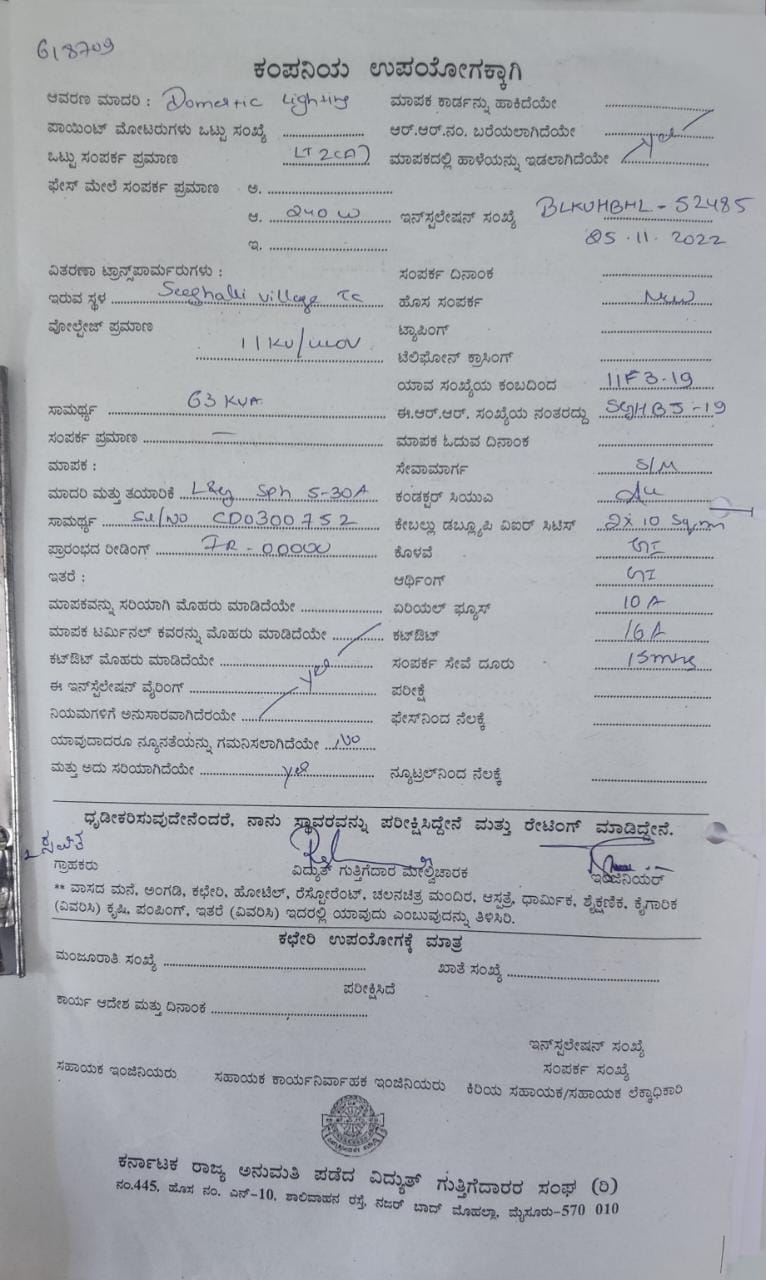 618709
ಕಂಪನಿಯ ಉಪಯೋಗಕ್ಕಾಗಿ
ಆವರಣ ಮಾದರಿ : Domestic Lighting ಮಾಪಕ ಕಾರ್ಡನ್ನು ಹಾಕಿದೆಯೇ
ಪಾಯಿಂಟ್ ಮೋಟರುಗಳು ಒಟ್ಟು ಸಂಖ್ಯೆ ಆರ್.ಆರ್.ನಂ. ಬರೆಯಲಾಗಿದೆಯೇ
ಒಟ್ಟು ಸಂಪರ್ಕ ಪ್ರಮಾಣ LT2(A) ಮಾಪಕದಲ್ಲಿ ಹಾಳೆಯನ್ನು ಇಡಲಾಗಿದೆಯೇ yes
ಫೇಸ್ ಮೇಲೆ ಸಂಪರ್ಕ ಪ್ರಮಾಣ ಅ.
ಆ. 240 W ಇನ್‌ಸ್ಪಲೇಷನ್ ಸಂಖ್ಯೆ BLKUHBHL-52485
ಇ. 05.11.2022
ವಿತರಣಾ ಟ್ರಾನ್ಸ್‌ಪಾರ್ಮರುಗಳು : ಸಂಪರ್ಕ ದಿನಾಂಕ
ಇರುವ ಸ್ಥಳ Seeghalli village TC ಹೊಸ ಸಂಪರ್ಕ New
ವೋಲ್ಟೇಜ್ ಪ್ರಮಾಣ ಟ್ಯಾಪಿಂಗ್
11KV/ ಟೆಲಿಫೋನ್ ಕ್ರಾಸಿಂಗ್
ಯಾವ ಸಂಖ್ಯೆಯ ಕಂಬದಿಂದ 11F3-19
ಸಾಮರ್ಥ್ಯ 63 KVA ಈ.ಆರ್.ಆರ್. ಸಂಖ್ಯೆಯ ನಂತರದ್ದು SGHBJ-19
ಸಂಪರ್ಕ ಪ್ರಮಾಣ — ಮಾಪಕ ಓದುವ ದಿನಾಂಕ
ಮಾಪಕ : ಸೇವಾಮಾರ್ಗ S/M
ಮಾದರಿ ಮತ್ತು ತಯಾರಿಕೆ L&G Sph 5-30A ಕಂಡಕ್ಟರ್ ಸಿಯುಎ
ಸಾಮರ್ಥ್ಯ Sl/NO CD0300752 ಕೇಬಲ್ಲು ಡಬ್ಲ್ಯೂಪಿ ವಿಐರ್ ಸಿಟಿಸ್ 2x10 Sq.mm
ಪ್ರಾರಂಭದ ರೀಡಿಂಗ್ IR-00000 ಕೊಳವೆ GI
ಇತರೆ : ಆರ್ಥಿಂಗ್ GI
ಮಾಪಕವನ್ನು ಸರಿಯಾಗಿ ಮೊಹರು ಮಾಡಿದೆಯೇ ಏರಿಯಲ್ ಫ್ಯೂಸ್ 10A
ಮಾಪಕ ಟರ್ಮಿನಲ್ ಕವರನ್ನು ಮೊಹರು ಮಾಡಿದೆಯೇ ಕಟ್‌ಔಟ್ 16A
ಕಟ್‌ಔಟ್ ಮೊಹರು ಮಾಡಿದೆಯೇ yes ಸಂಪರ್ಕ ಸೇವೆ ದೂರು 15mts
ಈ ಇನ್‌ಸ್ಟೆಲೇಷನ್ ವೈರಿಂಗ್ ಪರೀಕ್ಷೆ
ನಿಯಮಗಳಿಗೆ ಅನುಸಾರವಾಗಿದೆರಯೇ ಫೇಸ್‌ನಿಂದ ನೆಲಕ್ಕೆ
ಯಾವುದಾದರೂ ನ್ಯೂನತೆಯನ್ನು ಗಮನಿಸಲಾಗಿದೆಯೇ No
ಮತ್ತು ಅದು ಸರಿಯಾಗಿದೆಯೇ yes ನ್ಯೂಟ್ರಲ್‌ನಿಂದ ನೆಲಕ್ಕೆ
ಧೃಡೀಕರಿಸುವುದೇನೆಂದರೆ, ನಾನು ಸ್ಥಾವರವನ್ನು ಪರೀಕ್ಷಿಸಿದ್ದೇನೆ ಮತ್ತು ರೇಟಿಂಗ್ ಮಾಡಿದ್ದೇನೆ.
ಗ್ರಾಹಕರು ವಿದ್ಯುತ್ ಗುತ್ತಿಗೆದಾರ ಮೇಲ್ವಿಚಾರಕ ಇಂಜಿನಿಯರ್
** ವಾಸದ ಮನೆ, ಅಂಗಡಿ, ಕಛೇರಿ, ಹೋಟೆಲ್, ರೆಸ್ಟೋರೆಂಟ್, ಚಲನಚಿತ್ರ ಮಂದಿರ, ಆಸ್ಪತ್ರೆ, ಧಾರ್ಮಿಕ, ಶೈಕ್ಷಣಿಕ, ಕೈಗಾರಿಕ
(ವಿವರಿಸಿ) ಕೃಷಿ, ಪಂಪಿಂಗ್, ಇತರೆ (ವಿವರಿಸಿ) ಇದರಲ್ಲಿ ಯಾವುದು ಎಂಬುವುದನ್ನು ತಿಳಿಸಿರಿ.
ಕಛೇರಿ ಉಪಯೋಗಕ್ಕೆ ಮಾತ್ರ
ಮಂಜೂರಾತಿ ಸಂಖ್ಯೆ ಖಾತೆ ಸಂಖ್ಯೆ
ಪರೀಕ್ಷಿಸಿದೆ
ಕಾರ್ಯ ಆದೇಶ ಮತ್ತು ದಿನಾಂಕ
ಇನ್‌ಸ್ಪಲೇಷನ್ ಸಂಖ್ಯೆ
ಸಂಪರ್ಕ ಸಂಖ್ಯೆ
ಸಹಾಯಕ ಇಂಜಿನಿಯರು ಸಹಾಯಕ ಕಾರ್ಯನಿರ್ವಾಹಕ ಇಂಜಿನಿಯರು ಕಿರಿಯ ಸಹಾಯಕ/ಸಹಾಯಕ ಲೆಕ್ಕಾಧಿಕಾರಿ
ಕರ್ನಾಟಕ ರಾಜ್ಯ ಅನುಮತಿ ಪಡೆದ ವಿದ್ಯುತ್ ಗುತ್ತಿಗೆದಾರರ ಸಂಘ (ರಿ)
ನಂ.445, ಹೊಸ ನಂ. ಎನ್-10, ಶಾಲಿವಾಹನ ರಸ್ತೆ, ನಜರ್ ಬಾದ್ ಮೊಹಲ್ಲಾ, ಮೈಸೂರು-570 010